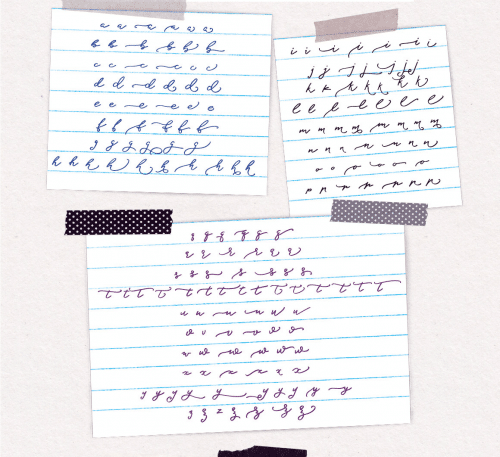 a a a a a a
b b b b b b
c c c c c c
d d d d d d
e e e e e e
f f f f f f
g g g g g g
h h h h h h h h h h
i i i i i i i
j j j j j j j
k k k k k k
l l l l l l l
m m m m m m m
n n n n n n n
o o o o o o
p p p p p p p
q q q q q q
r r r r r r
s s s s s s s s
t t t t t t t t t t t t t t
u u u u u u
v v v v v v
w w w w w w
x x x x x x
y y y y y y y y y y
z z z z z z z